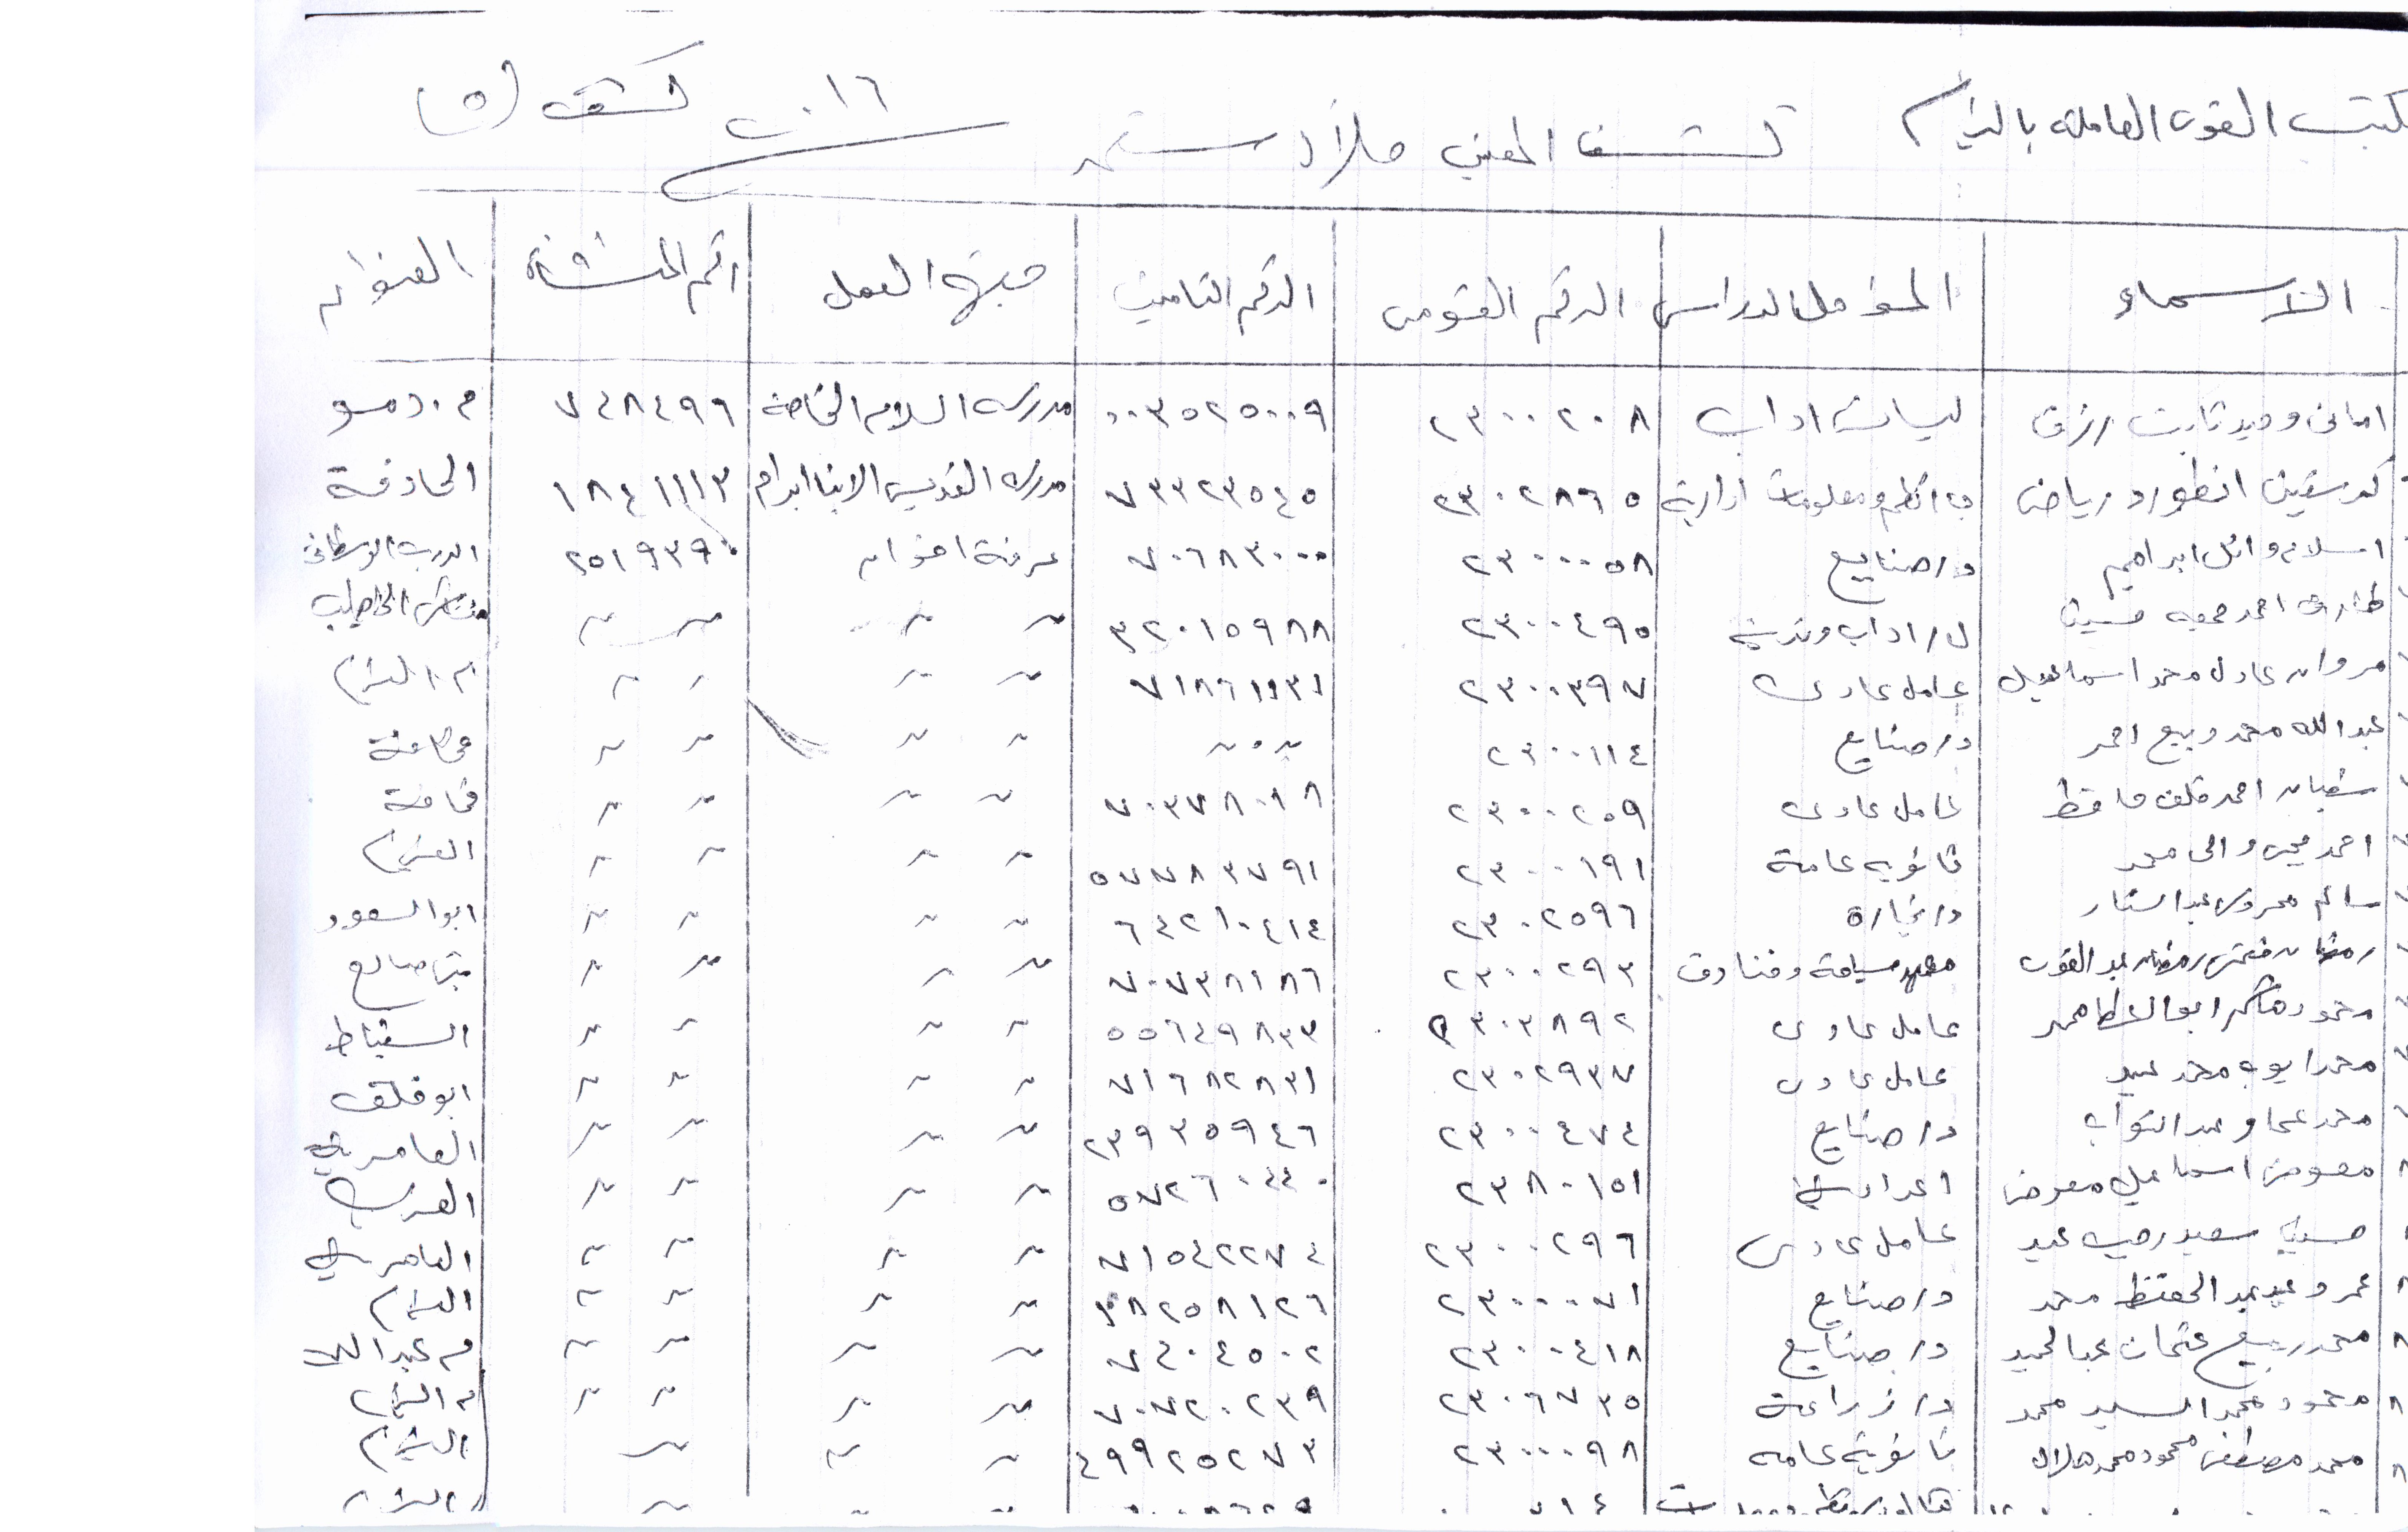 مكتب القوى العاملة بالفيوم كشف المعينين خلال سبتمبر ٢٠١٦ كشف (٥)
الأسماء المؤهل الدراسي الرقم القومى الرقم التامينى جهة العمل رقم المنشأة العنوان
امانى وحيد ثابت رزق ليسانس اداب ٢٣٠٠٢٠٨ ٠٠٣٥٢٥٠٠٩ مدرسة السلام الخاصة ٧٤٨٤٩٦ م. دمو
انطور رياض نظم ومعلومات ادارية ٢٣٠٢٨٦٥ ٧٣٣٢٣٥٤٥ مدرسة القديس الانبا ابرام ١٨٤١١١٣ الحادقة
اسلام وائل ابراهيم د/صنايع ٢٣٠٠٠٥٨ ٧٠٦٨٣٠٠٠ عرفة اخوان ٢٥١٩٣٩٠
طارق احمد جمعه حسين ل/اداب وتربية ٢٣٠٠٤٩٥ ٣٢٠١٥٩٨٨ 〃 〃 〃 〃
مروان عادل محمد اسماعيل عامل عادى ٢٣٠٠٣٩٧ ٧١٨٦١١٣١ 〃 〃 〃 〃 م. الفيوم
عبدالله محمد ربيع احمد د/صنايع ٢٣٠٠١١٤ 〃 〃 〃 〃
شعبان احمد خلف حافظ عامل عادى ٢٣٠٠٢٠٩ ٧٠٣٧٨٠١٨ 〃 〃 〃 〃 قحافة
احمد محيى والى محمد ثانويه عامة ٢٣٠٠١٩١ ٥٧٧٨٣٧٩١ 〃 〃 〃 〃 الفيوم
سالم محروس عبدالستار د/تجارة ٢٣٠٢٥٩٦ ٦٤٢١٠٤١٤ 〃 〃 〃 〃 ابو السعود
رمضان فتحى رمضان عبد القوى معهد سياحة وفنادق ٢٣٠٠٢٩٣ ٧٠٧٣٨١٨٦ 〃 〃 〃 〃 بنى صالح
محمود شاكر ابو العطا محمد عامل عادى ٣٠٣٨٩٢ ٥٥٦٤٩٨٣٣ 〃 〃 〃 〃
محمد ايوب محمد عيد عامل عادى ٢٣٠٢٩٣٧ ٧١٦٨٢٨٣١ 〃 〃 〃 〃 ابو خلف
محمد عبد التواب د/صنايع ٢٣٠٠٤٧٤ ٢٣٩٣٥٩٤٦ 〃 〃 〃 〃 العامرية
معوض اسماعيل معوض اعدادية ٢٣٨٠١٥١ ٥٧٢٦٠٤٤٠ 〃 〃 〃 〃 العزب
حسين سعيد رجب عيد عامل عادى ٢٣٠٠٢٩٦ ٧١٥٤٢٢٧٤ 〃 〃 〃 〃 العامرية
عمرو عيد عبد الحفيظ محمد د/صنايع ٢٣٠٠٠٧١ ٨٢٥٨١٢٦ 〃 〃 〃 〃 الفيوم
محمد ربيع عثمان عبدالحميد د/صنايع ٢٣٠٠٤١٨ ٧٤٠٤٥٠٢ 〃 〃 〃 〃 م عبد الله
محمود محمد السيد محمد د/زراعة ٢٣٠٦٧٣٥ ٧٠٧٢٠٢٣٩ 〃 〃 〃 〃 م الفيوم
محمد مصطفى محمود محمد هلال ثانوية عامه ٢٣٠٠٠٩٨ ٤٩٩٢٥٢٧٣ 〃 〃 〃 الفيوم